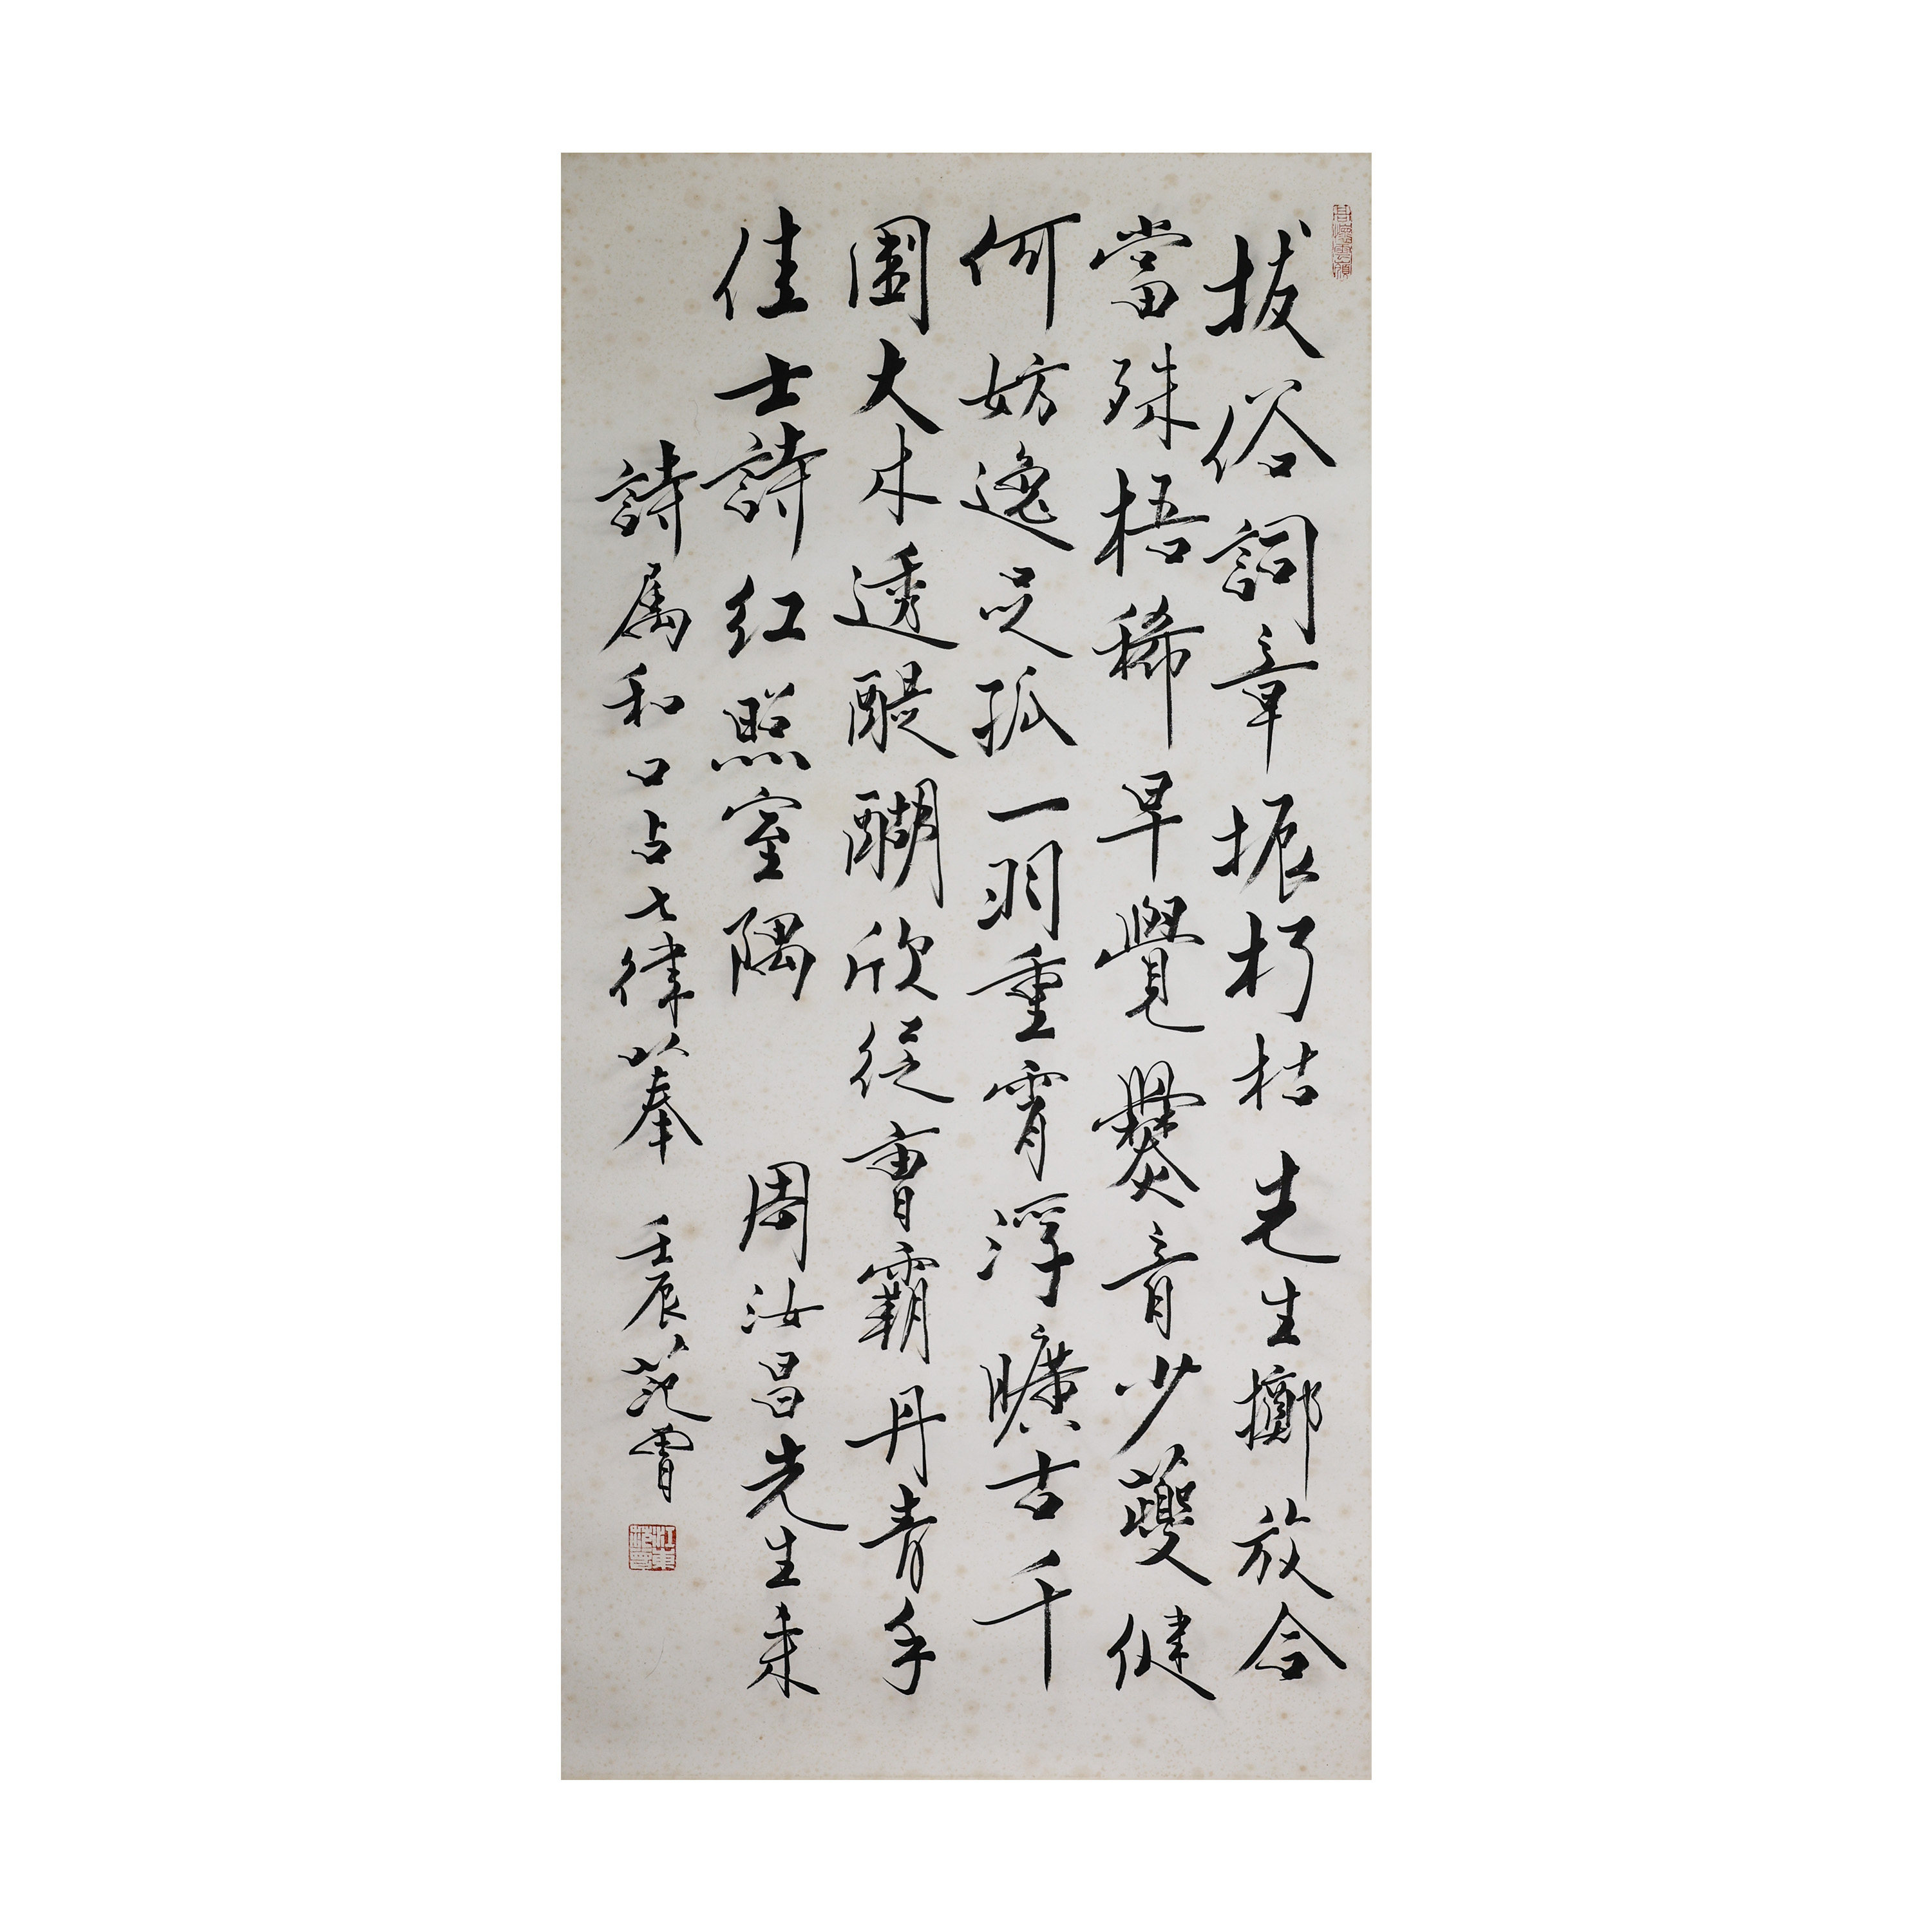 拔俗詞章振朽枯先生擲放合
當殊梧稀早覺爨音少夔健
何妨逸足孤一羽重霄浮曠古千
園大木透醍醐欣從曹霸丹青手
佳士詩紅照室隅 周汝昌先生来
詩属和口占七律以奉 壬辰范曾
江東范曾